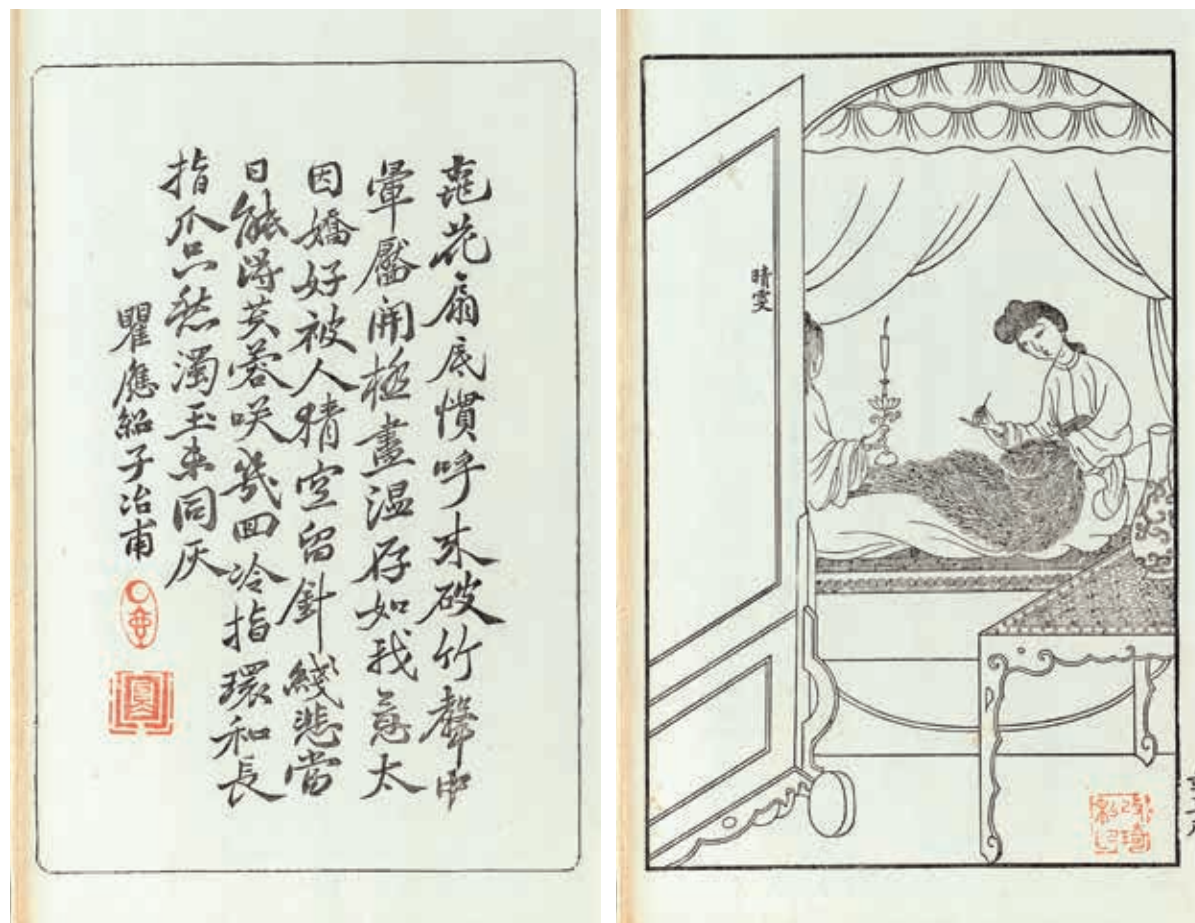 花扇底慣呼来破竹聲中
暈靨開極盡温存如我意太
因嬌好被人猜空留針綫悲當
日能得芙蓉咲幾囬冷指環和長
指爪只愁濁玉未同灰
瞿應紹子冶甫
晴雯